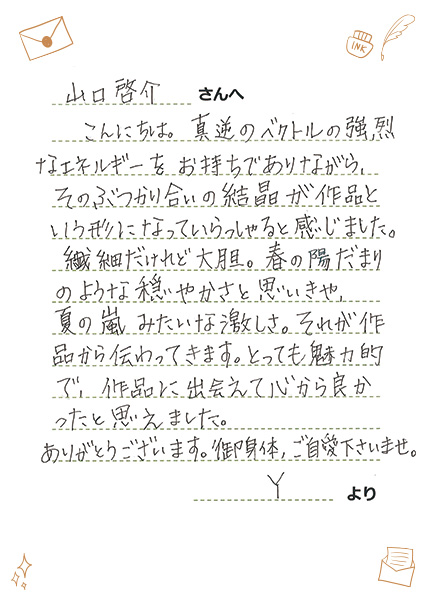 INK
山口啓介 さんへ
こんにちは。真逆のベクトルの強烈
なエネルギーをお持ちでありながら、
そのぶつかり合いの結晶が作品と
いう形になっていらっしゃると感じました。
繊細だけれど大胆。春の陽だまり
のような穏やかさと思いきや、
夏の嵐みたいな激しさ。それが作
品から伝わってきます。とっても魅力的
で、作品に出会えて心から良か
ったと思えました。
ありがとうございます。御身体、ご自愛下さいませ。
Y より